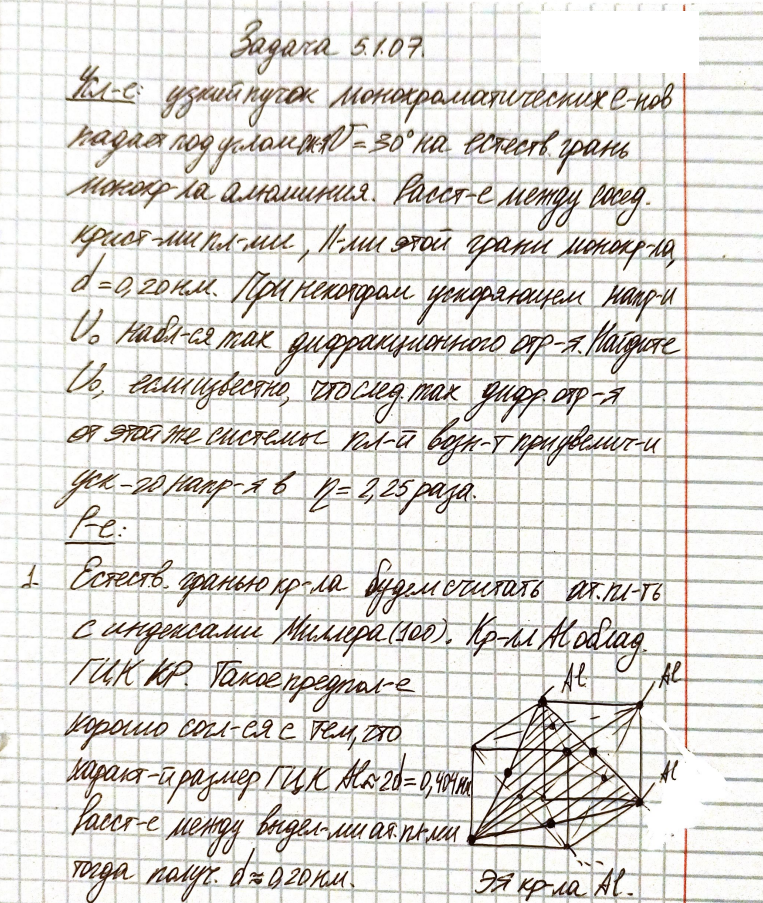 Задача 5.1.07.
Усл-е: узкий пучок монохроматических e-нов
падает под углом ск-я ϑ = 30° на естеств. грань
монокр-ла алюминия. Расст-е между сосед.
крист-ми пл-ми, ||-ми этой грани монокр-ла,
d = 0,20 нм. При некотором ускоряющем напр-и
U₀ набл-ся max дифракционного отр-я. Найдите
U₀, если известно, что след. max дифр. отр-я
от этой же системы пл-й возн-т при увелич-и
уск-го напр-я в η = 2,25 раза.
Р-е:
1. Естеств. гранью кр-ла будем считать ат. пл-ть
с индексами Миллера (100). Кр-лл Al облад.
ГЦК КР. Такое предпол-е
хорошо согл-ся с тем, что
характ-й размер ГЦК Al ≈ 2d = 0,404 нм
Расст-е между выдел-ми ат. пл-ми
тогда получ. d ≈ 0,20 нм.
Al
Al
Al
ЭЯ кр-ла Al.